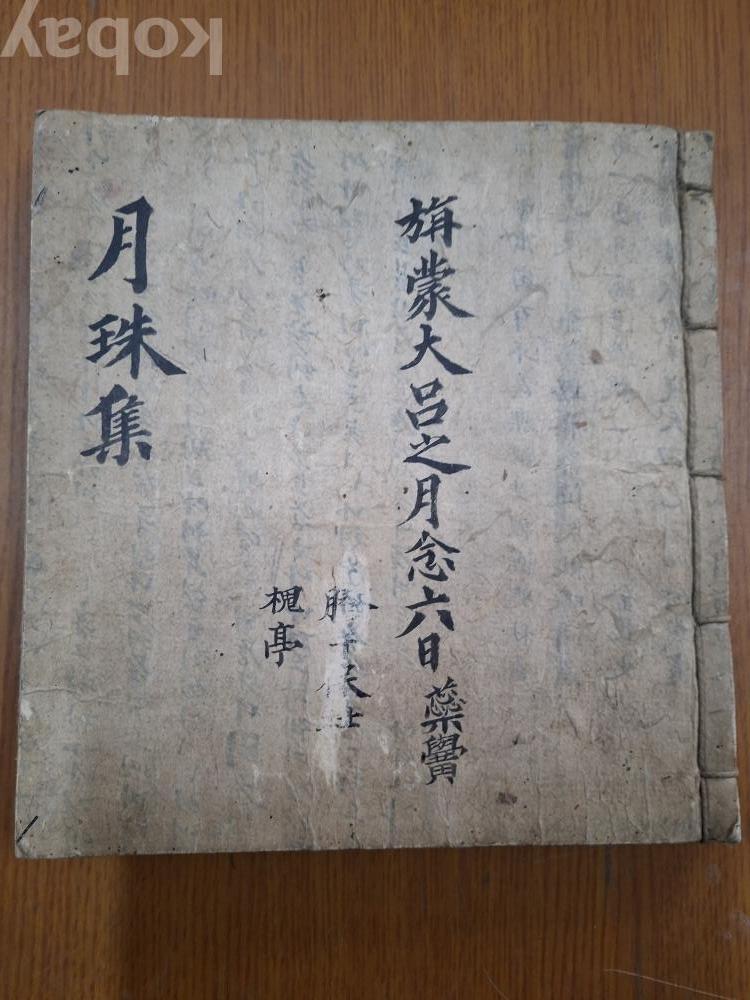 kobay
旃蒙大呂之月念六日 蘂黌
保
槐亭
月珠集